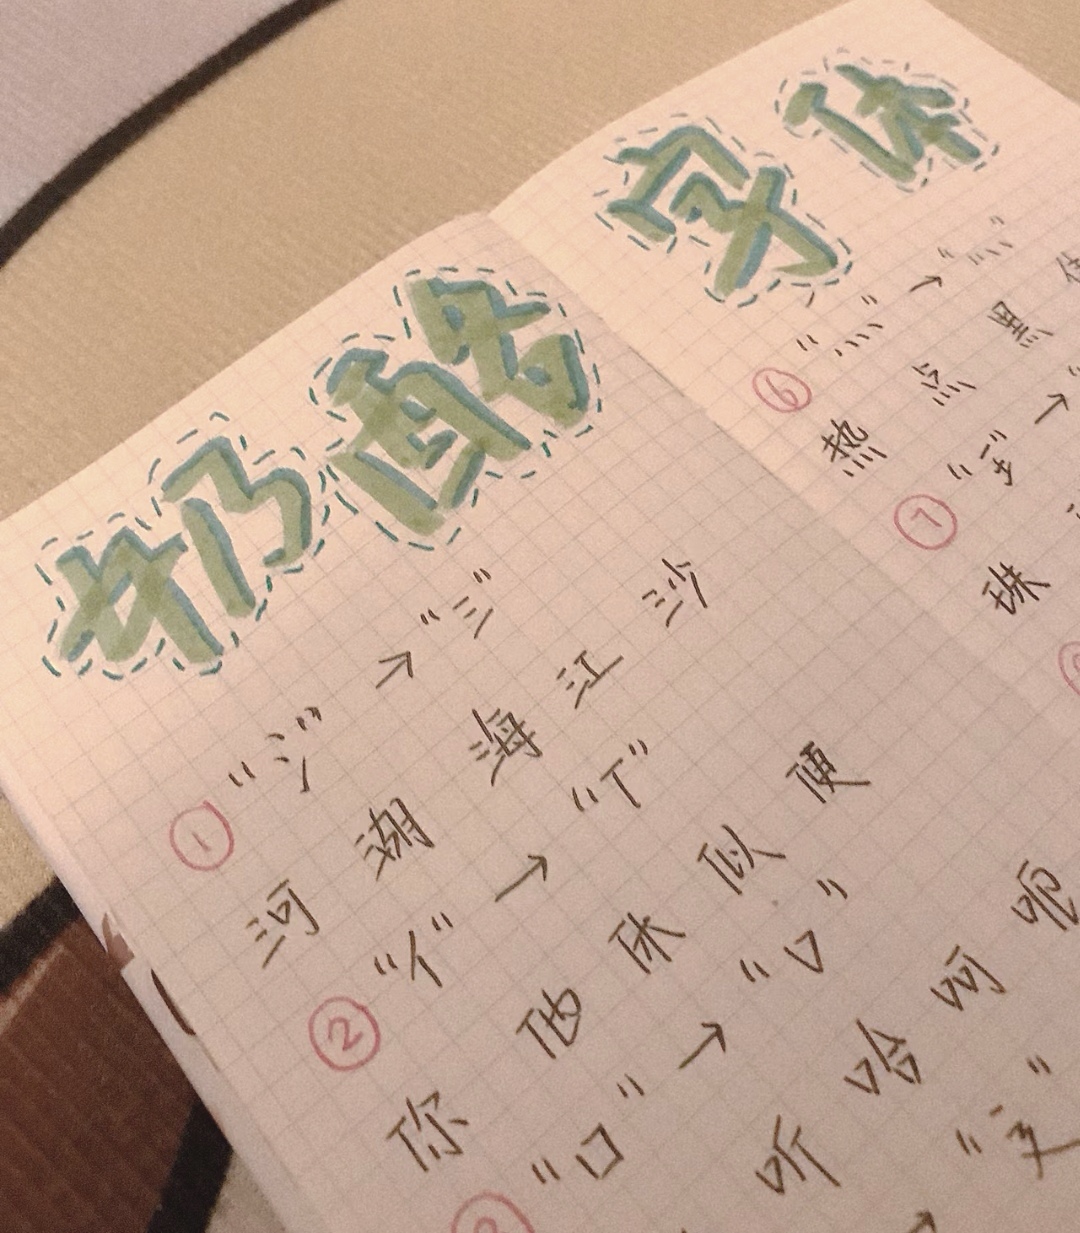 奶酪字体
① "氵" → "三"
河 湖 海 江 沙
② "亻" → "T"
你 他 休 似 便
"口" → "マ"
听 哈 呵 呃
⑥ "灬" → "灬"
热 点 黑
⑦ "王" →
珠